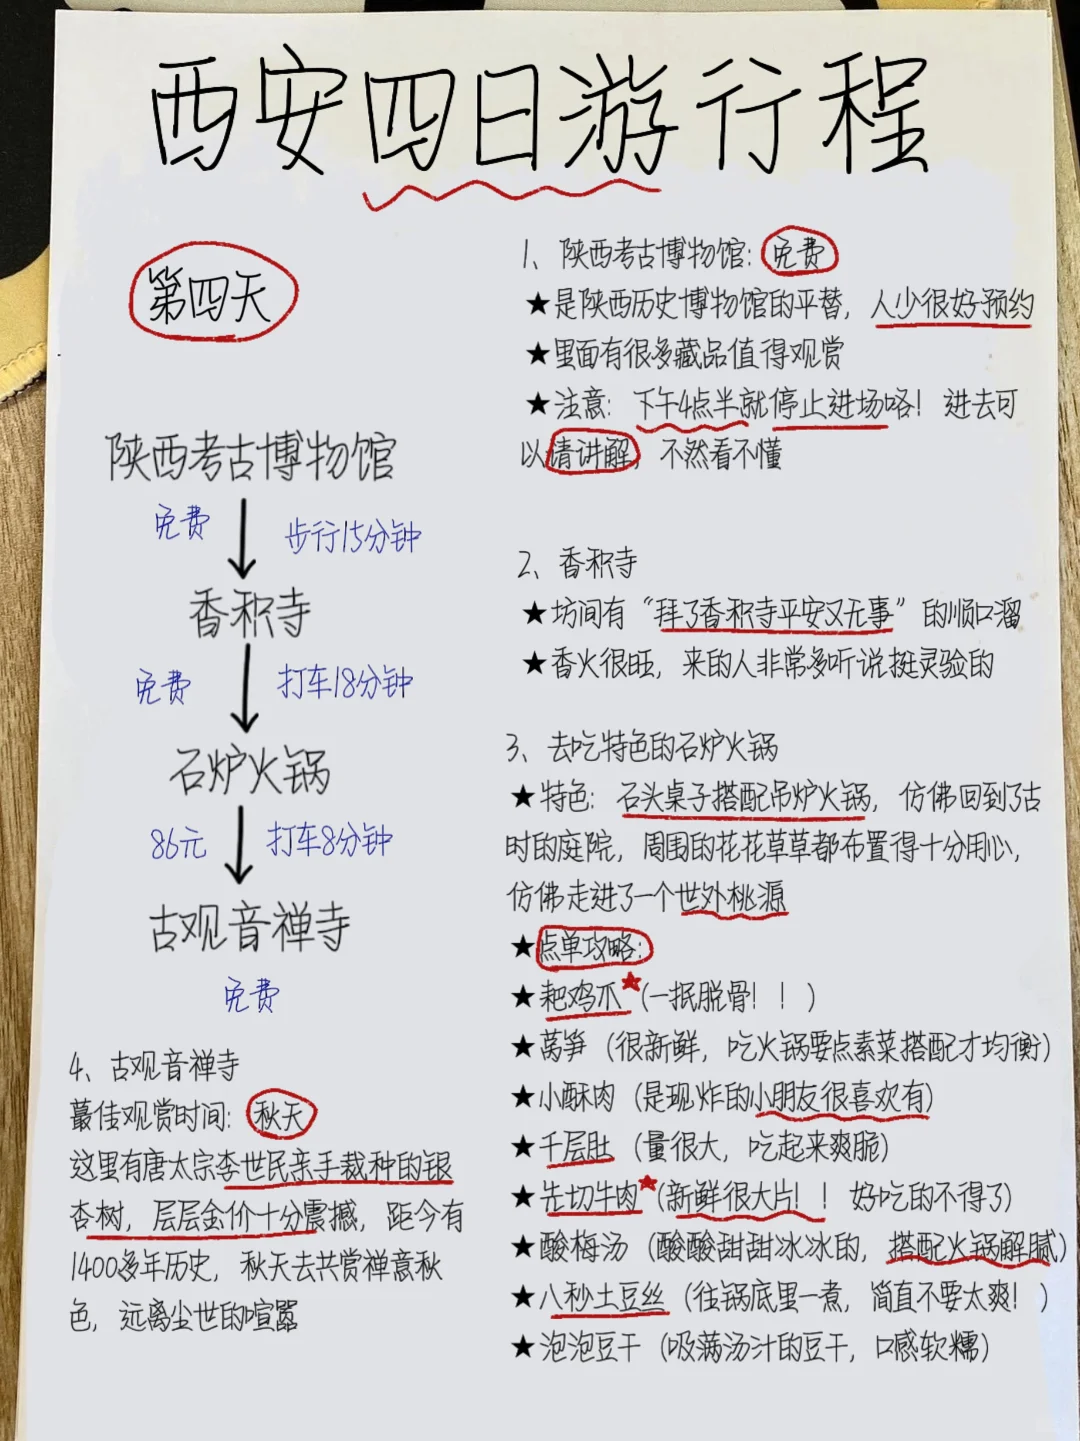 西安四日游行程
第四天
陕西考古博物馆
免费 步行15分钟
香积寺
免费 打车18分钟
石炉火锅
86元 打车8分钟
古观音禅寺
免费
4、古观音禅寺
最佳观赏时间：秋天
这里有唐太宗李世民亲手栽种的银
杏树，层层金价十分震撼，距今有
1400多年历史，秋天去共赏禅意秋
色，远离尘世的喧嚣
1、陕西考古博物馆：免费
★是陕西历史博物馆的平替，人少很好预约
★里面有很多藏品值得观赏
★注意：下午4点半就停止进场咯！进去可
以请讲解，不然看不懂
2、香积寺
★坊间有“拜了香积寺平安又无事”的顺口溜
★香火很旺，来的人非常多听说挺灵验的
3、去吃特色的石炉火锅
★特色：石头桌子搭配吊炉火锅，仿佛回到了古
时的庭院，周围的花花草草都布置得十分用心，
仿佛走进了一个世外桃源
★点单攻略：
★耙鸡爪★（一抿脱骨！！）
★莴笋（很新鲜，吃火锅要点素菜搭配才均衡）
★小酥肉（是现炸的小朋友很喜欢有）
★千层肚（量很大，吃起来爽脆）
★先切牛肉★（新鲜很大片！！好吃的不得了）
★酸梅汤（酸酸甜甜冰冰的，搭配火锅解腻）
★八秒土豆丝（往锅底里一煮，简直不要太爽！）
★泡泡豆干（吸满汤汁的豆干，口感软糯）